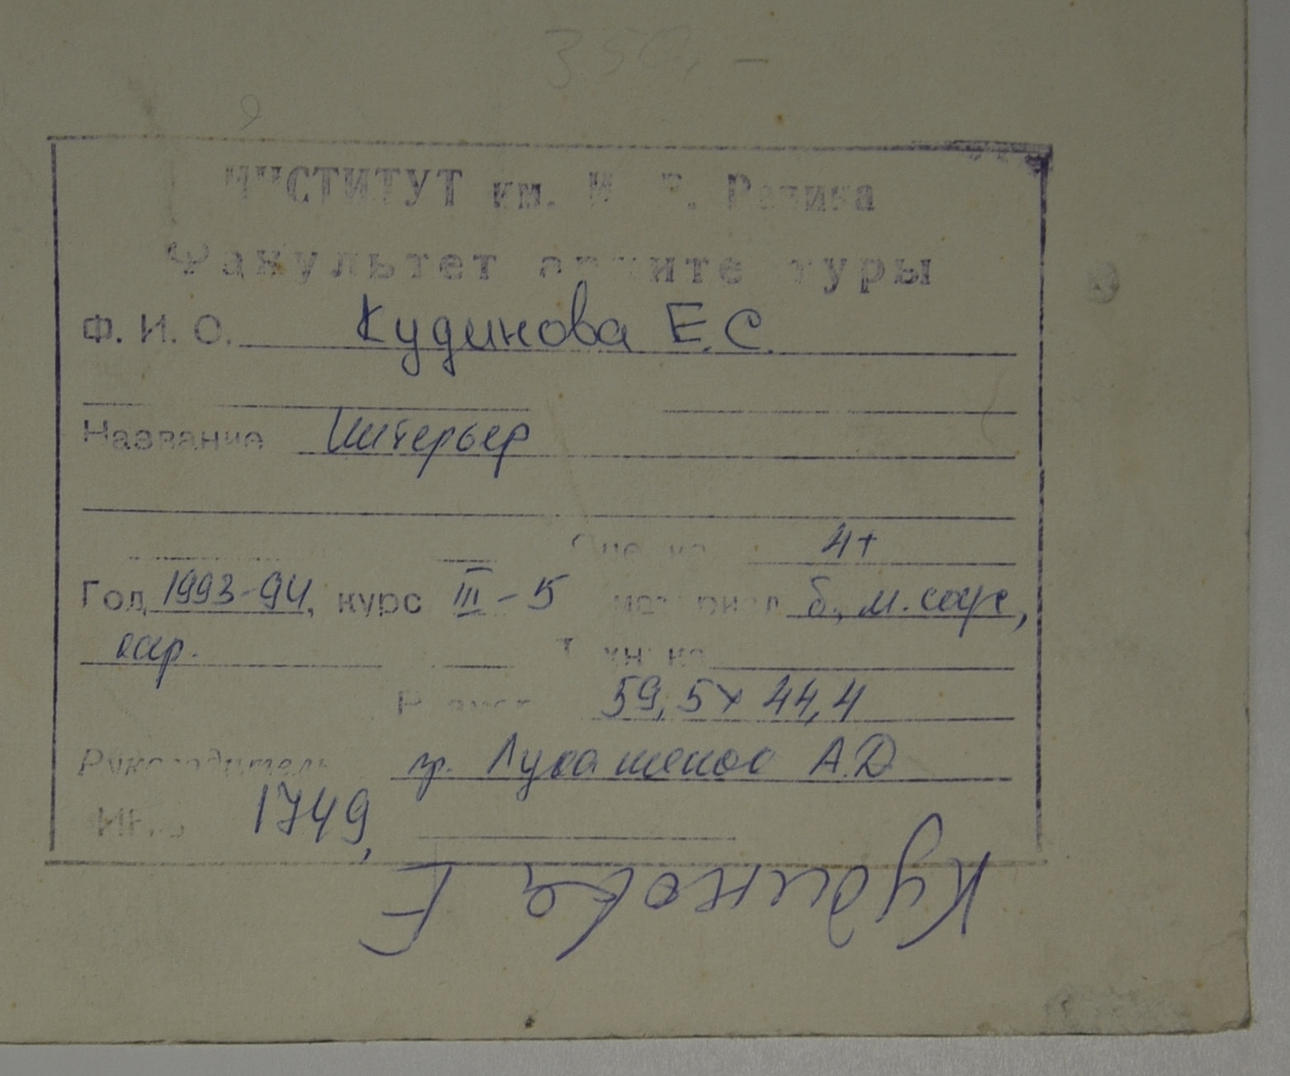 350, –
ИНСТИТУТ им. И. Е. Репина
Факультет архитектуры
Ф. И. О. Кудинова Е.С.
Название Интерьер
Оценка 4+
Год 1993-94, курс III-5 материал б., м. соус,
кар.
Техника
Размер 59,5 х 44,4
Руководитель пр. Лукашенко А.Д
Инв. 1749,
Кудинова Е